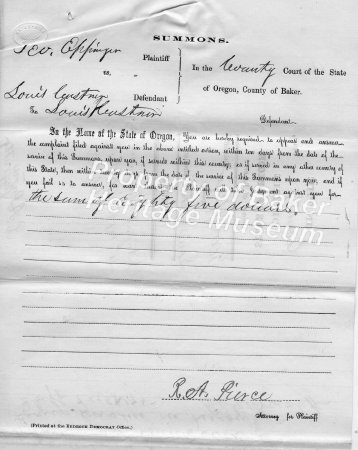 SUMMONS.
Geo. Eppinger
Plaintiff
vs.
In the County Court of the State
of Oregon, County of Baker.
Louis
Defendant
To Louis
Defendant.
In the Name of the State of Oregon. You are hereby required to appear and answer
the complaint filed against you in the above entitled action, within ten days from the date of the
service of this Summons upon you, if served within this county; or if served in any other county of
this State, then within days from the date of the service of this Summons upon you; and if
you fail to answer, for want thereof, the plaintiff will take judgment against you for
the sum of eighty five dollars.
Property of Baker
Heritage Museum
R. A. Pierce
Attorney for Plaintiff
(Printed at the BEDROCK DEMOCRAT Office.)